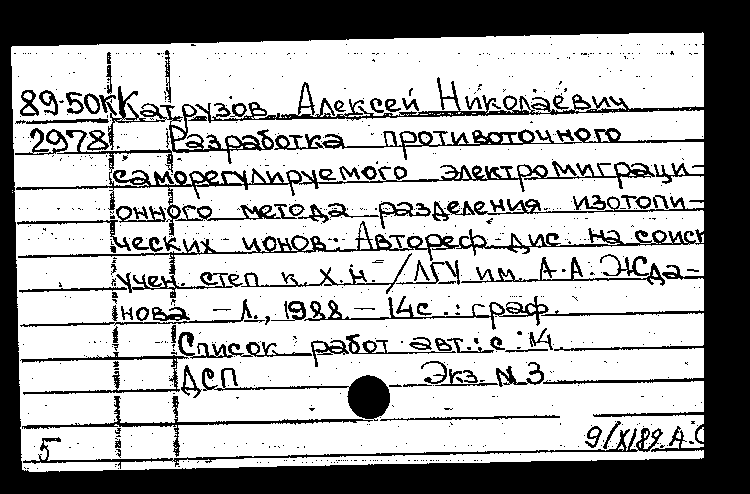 89-50к Катрузов Алексей Николаевич
2978 Разработка противоточного
саморегулируемого электромиграци-
онного метода разделения изотопи-
ческих ионов: Автореф. дис. на соиск
учен. степ. к. х. н. /ЛГУ им. А. А. Жда-
нова. - Л., 1988. - 14с.: граф.
Список работ авт.: с. 14
ДСП Экз. N 3
5 9/XI89. А.С